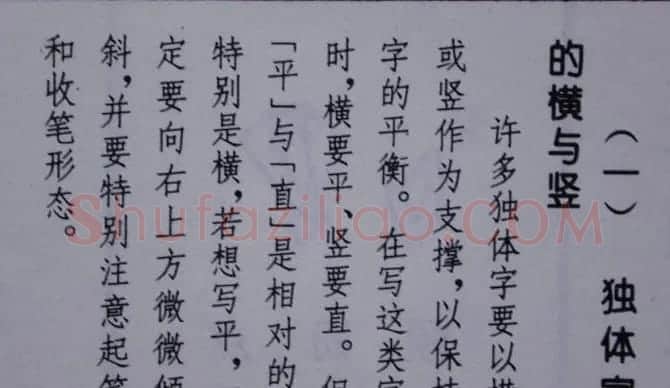 （一） 独体字
的横与竖
许多独体字要以横
或竖作为支撑，以保持
字的平衡。在写这类字
时，横要平、竖要直。但
「平」与「直」是相对的
特别是横，若想写平，
定要向右上方微微倾
斜，并要特别注意起笔
和收笔形态。
Shufaziliao.COM